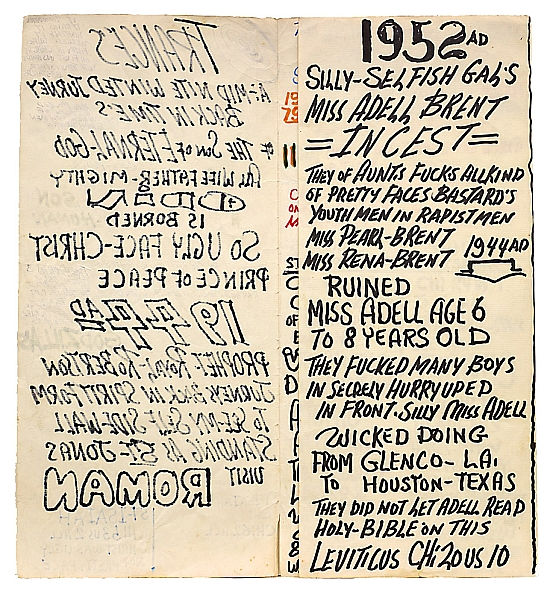 TRANCE'S
A-MID NITE WINTED JORNEY
BACK IN TIMES
OF THE SON OF ETERNAL-GOD
FATHER-MIGHTY
IS BORNED
SO UGLY FACE-CHRIST
PRINCE OF PEACE
AD
PROPHET ROYAL ROBERTSON
BACK IN SPIRIT FORM
TO SE-MY SELF SIDE-WALL
STANDING AS ST-JONAS
VISIT
ROMAN
1952 AD
SILLY-SELFISH GAL'S
MISS ADELL BRENT
=INCEST=
THEY OF AUNTS FUCKS ALLKIND
OF PRETTY FACES BASTARD'S
YOUTH MEN IN RAPIST MEN
MISS PEARL-BRENT
MISS RENA-BRENT 1944AD
RUINED
MISS ADELL AGE 6
TO 8 YEARS OLD
THEY FUCKED MANY BOYS
IN SECRELY HURRYUPED
IN FRONT. SILLY MISS ADELL
WICKED DOING
FROM GLENCO-LA.
TO HOUSTON-TEXAS
THEY DID NOT LET ADELL READ
HOLY-BIBLE ON THIS
LEVITICUS CH: 20 US 10